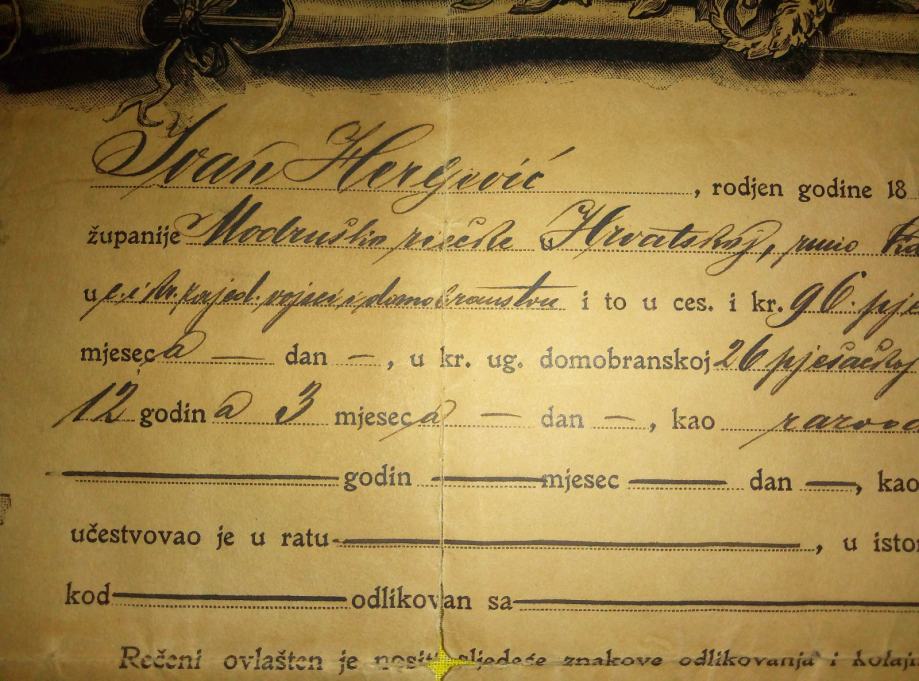 Ivan Hergović, rodjen godine 18
županije Modruško riečke u Hrvatskoj, puno
u c. i kr. zajed. vojsci i domobranstvu i to u ces. i kr. 96. pje
mjeseca — dan —, u kr. ug. domobranskoj 26 pješačkoj
12 godina 3 mjeseca — dan —, kao razvod
godin mjesec dan, kao
učestvovao je u ratu, u isto
kod odlikovan sa
Rečeni ovlašten je nositi sljedeće znakove odlikovanja i kolajn